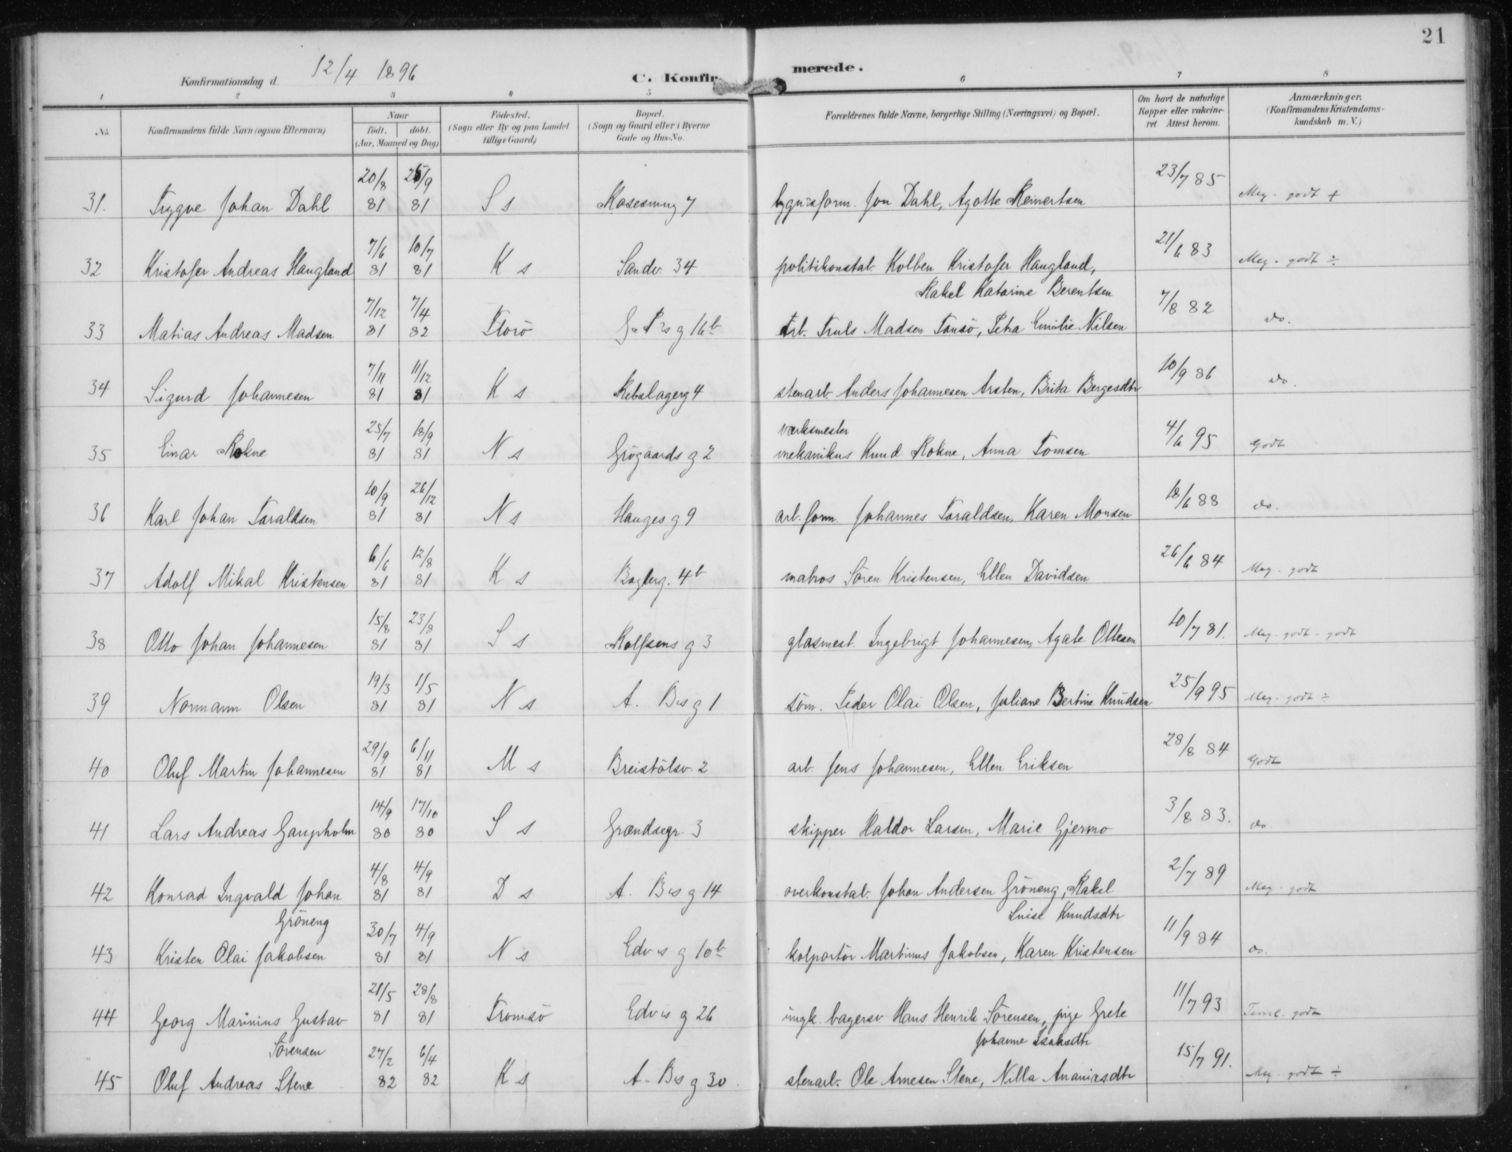 21
Konfirmationsdag d. 12/4 1896
C. Konfirmerede.
1 2 3 4 5 6 7 8
No. Konfirmandens fulde Navn (ogsaa Efternavn) Naar født. døbt. (Aar, Maaned og Dag) Fødested. (Sogn eller By og paa Landet tillige Gaard) Bopæl. (Sogn og Gaard eller i Byerne Gade og Hus-No. Forældrenes fulde Navne, borgerlige Stilling (Næringsvei) og Bopæl. Om havt de naturlige Kopper eller vakcineret. Attest herom. Anmærkninger. (Konfirmandens Kristendomskundskab m. V.)
31. Trygve Johan Dahl 20/8 81 25/9 81 S s 7 Jon Dahl, Agotte Reinertsen 23/7 85 Meg. godt +
32 Kristofer Andreas Haugland 7/6 81 10/7 81 K s Sandv 34 politikonstab. Kolben Kristofer Haugland, Rakel Katarine Berentsen 21/6 83 Meg. godt ÷
33 Matias Andreas Madsen 7/12 81 7/4 82 Florø g 16b Arb. Truls Madsen Tansø, Petra Emilie Nilsen 7/8 82 do.
34 Sigurd Johannesen 7/11 81 11/12 81 K s Rebslagerg 4 stenarb. Anders Johannesen Arsten, Brita Bergesdtr 10/9 86 do.
35 Einar Rokne 25/7 81 18/9 81 N s Grøgaards g 2 værksmester mekanikus Knud Rokne, Anna Tomsen 4/6 95 Godt
36 Karl Johan Taraldsen 10/9 81 26/12 81 N s Hauges g 9 arb. form. Johannes Taraldsen, Karen Monsen 18/6 88 do.
37 Adolf Mikal Kristensen 6/6 81 12/8 81 K s 4b matros Søren Kristensen, Ellen Davidsen 26/6 84 Meg. godt
38 Otto Johan Johannesen 15/8 81 23/8 81 S s Rolfsens g 3 glasmest. Ingebrigt Johannesen, Agate Ottesen 10/7 81. Meg. godt - godt
39 Normann Olsen 19/3 81 1/5 81 N s A. Bs g 1 søm. Peder Olai Olsen, Juliane Bertine Knudsen 25/9 95 Meg. godt ÷
40 Oluf Martin Johannesen 29/9 81 6/11 81 M s Breistølsv 2 arb. Jens Johannesen, Ellen Eriksen 28/8 84 Godt
41 Lars Andreas Gaupholm 14/9 80 17/10 80 S s Grændsegr 3 skipper Haldor Larsen, Marie Gjermo 3/8 83. do
42 Konrad Ingvald Johan Grøneng 4/8 81 4/9 81 D s A. Bs g 14 overkonstab. Johan Andersen Grøneng, Rakel Luise Knudsdtr 2/7 89 Meg. godt
43 Kristen Olai Jakobsen 30/7 81 4/9 81 N s Edv s g 10b kolportør Martinus Jakobsen, Karen Kristensen 11/9 84 do.
44 Georg Marinius Gustav Sørensen 21/5 81 28/8 81 Tromsø Edv s g 26 ungk. bagersv Hans Henrik Sørensen, pige Grete Johanne Isaksdtr 11/7 93 Teml. godt
45 Oluf Andreas Stene 27/2 82 6/4 82 K s A. Bs g 30 stenarb. Ole Arnesen Stene, Nilla Ananiasdtr 15/7 91. Meg. godt ÷